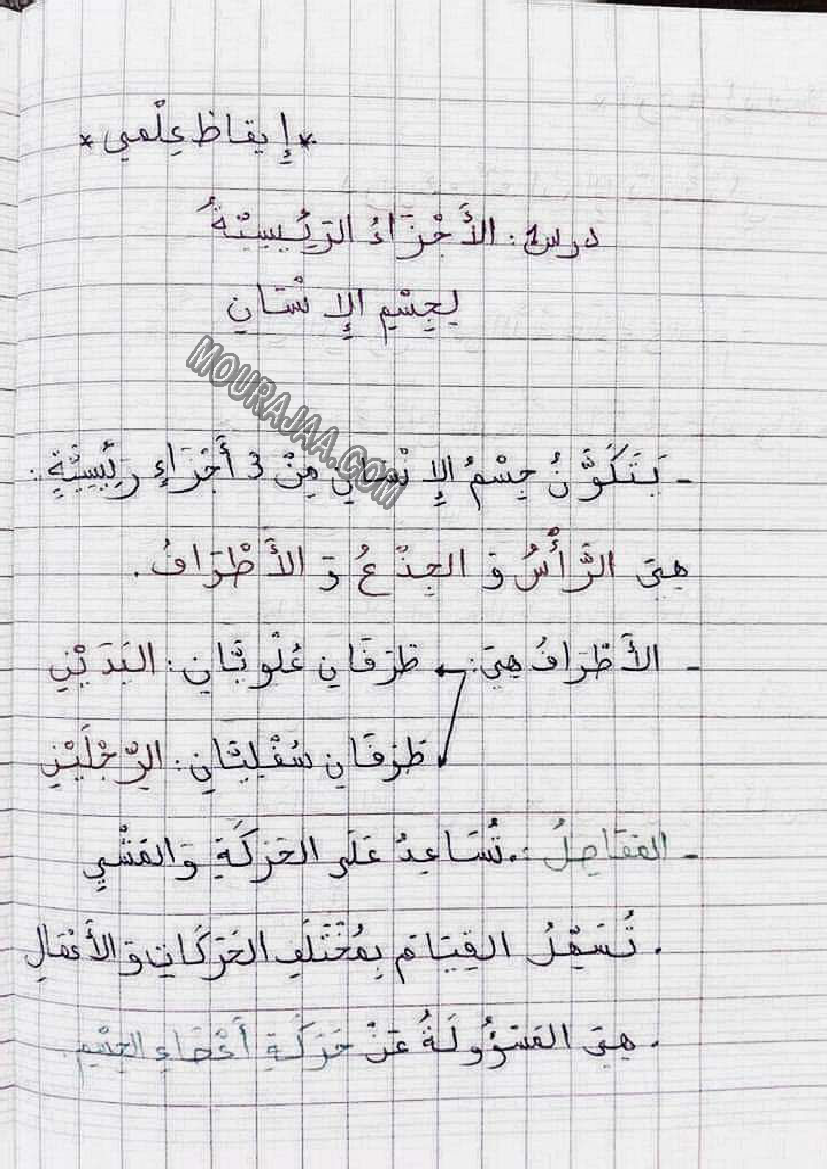 * إِيقاظ عِلْمي *
درس: الأَجْزَاءُ الرَّئِيسِيَّةُ
لِجِسْمِ الإِنْسَانِ
MOURAJAA.COM
- يَتَكَوَّنُ جِسْمُ الإِنْسَانِ مِنْ 3 أَجْزَاءٍ رَئِيسِيَّةٍ:
هِيَ الرَّأْسُ وَ الجِذْعُ وَ الأَطْرَافُ.
- الأَطْرَافُ هِيَ: طَرَفَانِ عُلْوِيَّانِ: اليَدَيْنِ
طَرَفَانِ سُفْلِيَّانِ: الرِّجْلَيْنِ
- المَفَاصِلُ: . تُسَاعِدُ عَلَى الحَرَكَةِ وَالمَشْيِ
. تُسَهِّلُ القِيَامَ بِمُخْتَلَفِ الحَرَكَاتِ وَ الأَعْمَالِ
. هِيَ المَسْؤُولَةُ عَنْ حَرَكَةِ أَعْضَاءِ الجِسْمِ.